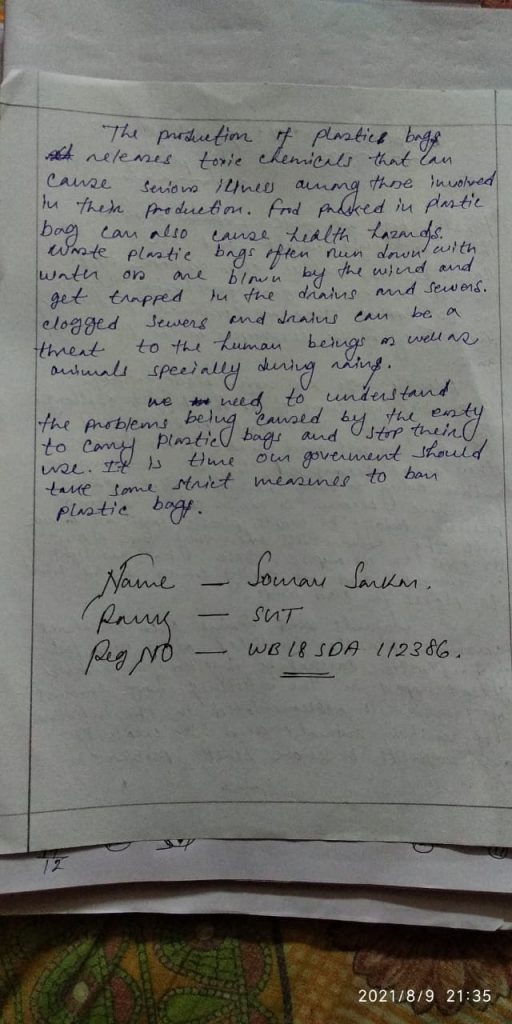 The production of plastics bags
releases toxic chemicals that can
cause serious illness among those involved
in their production. Food packed in plastic
bag can also cause health hazards.
Waste plastic bags often run down with
water or are blown by the wind and
get trapped in the drains and sewers.
clogged sewers and drains can be a
threat to the human beings as well as
animals specially during rains.
we need to understand
the problems being caused by the easty
to carry plastic bags and stop their
use. It is time our goverment should
take some strict measures to ban
plastic bags.
Name — Sourav Sarkar.
Rank — SUT
Reg NO — WB18 SDA 112386.
12
2021/8/9 21:35